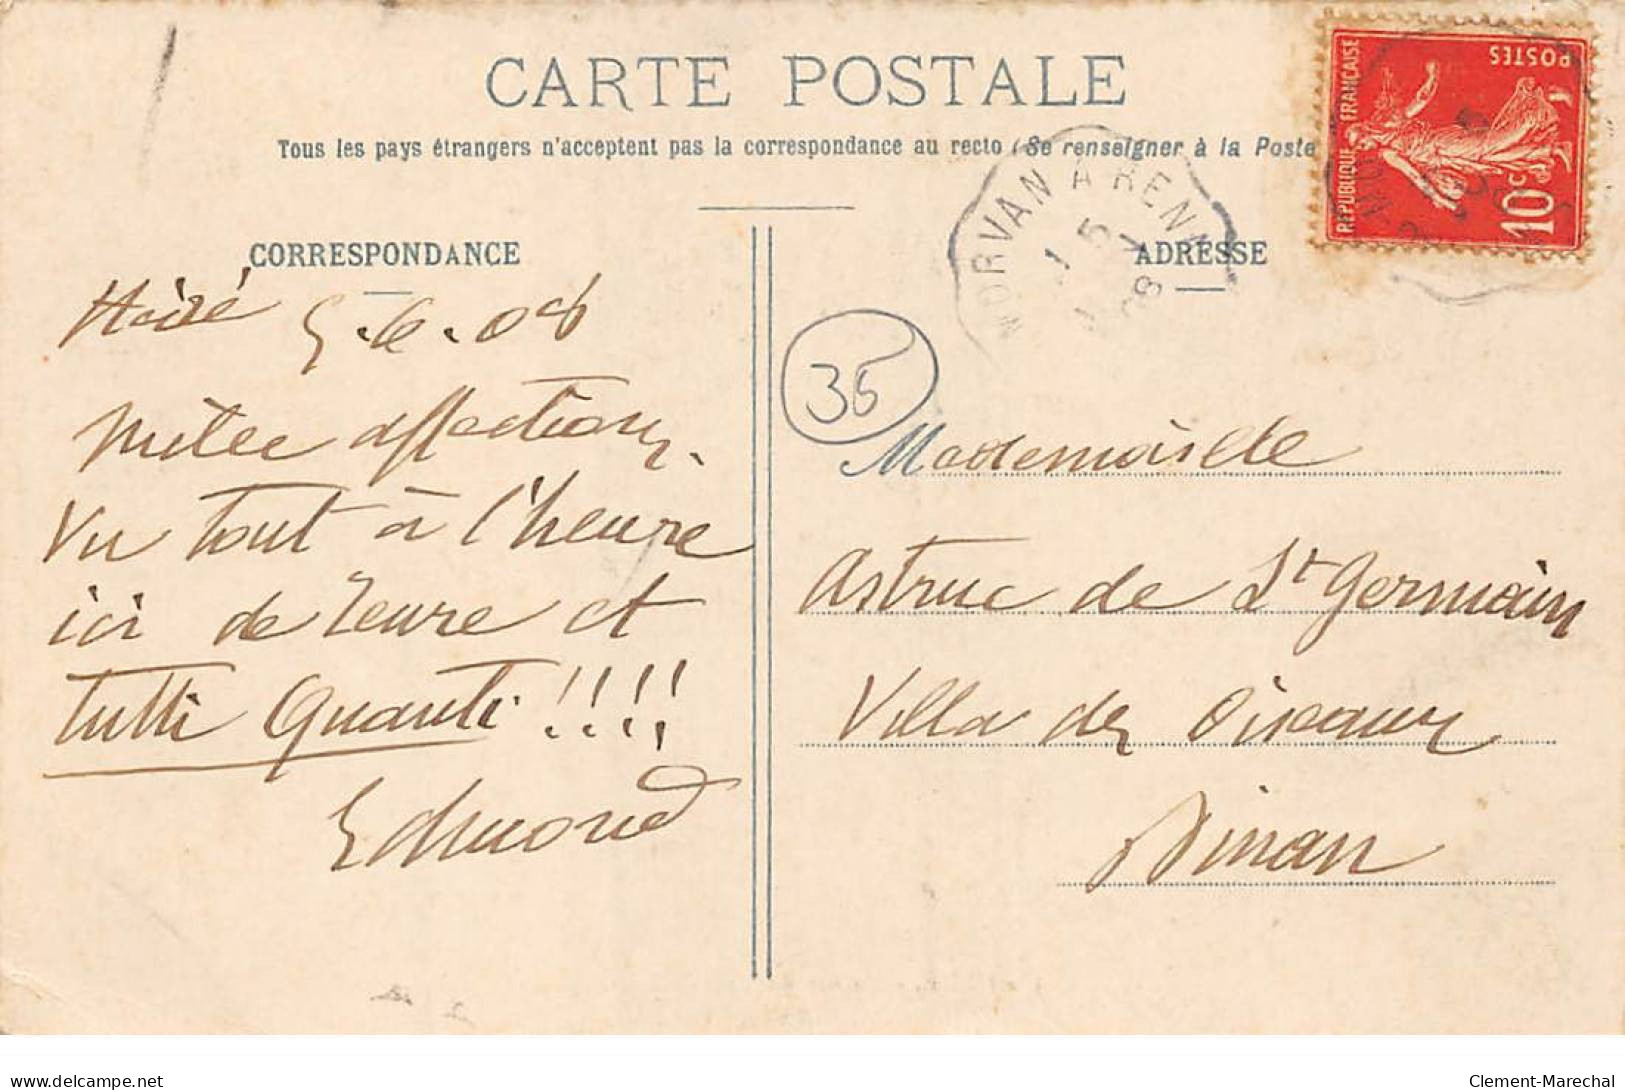 CARTE POSTALE
Tous les pays étrangers n'acceptent pas la correspondance au recto (Se renseigner à la Poste
CORRESPONDANCE
ADRESSE
MORVAN A RENN
5
08
REPUBLIQUE FRANÇAISE
POSTES
10c
35
5.6.08
Mille affections.
Vu tout à l'heure
ici de et
tutti quanti !!!!
Edmond
Mademoiselle
Astruc de St Germain
Villa des Oiseaux
Dinan
delcampe.net
Clement-Marechal